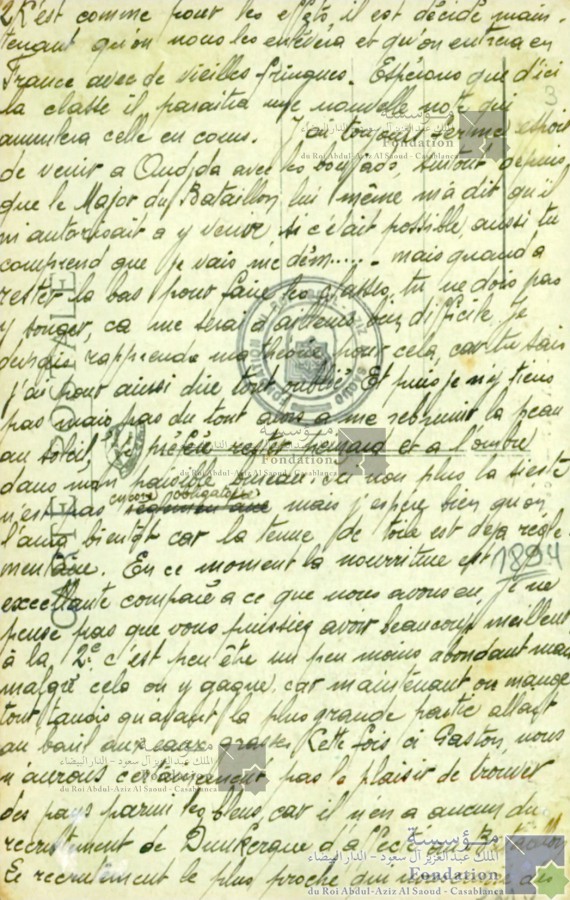 2) C'est comme pour les effets, il est décidé main-
tenant qu'on nous les enlèvera et qu'on entrera en
France avec de vieilles fringues. Espérons que d'ici
la classe il paraitra une nouvelle note qui
annulera celle en cours. J'ai toujours
de venir a Oudjda avec les surtout depuis
que le Major du Bataillon lui même m'a dit qu'il
m'autorisait a y venir si c'était possible, aussi tu
comprend que je vais me dém..... mais quand a
rester la bas pour faire les classes, tu ne dois pas
y songer, ca me serai d'ailleurs bien difficile, je
devrais rapprendre ma théorie pour cela, car tu sais
j'ai pour ainsi dire tout oublié. Et puis je n'y tiens
pas mais pas du tout
au soleil je préfère rester et a l'ombre
dans mon bureau. Ici non plus la sieste
n'est pas encore obligatoire mais j'espère bien qu'on
l'aura bientôt car la tenue de toile est déjà règle-
mentaire. En ce moment la nourriture est
1894
excellante comparé a ce que nous avons eu, je ne
pense pas que vous puissiez avoir beaucoup meilleur
à la 2e c'est peu être un peu moins abondant mais
malgré cela on y gagne, car maintenant on mange
tout tandis qu'avant la plus grande partie allait
au baril aux eaux grasses. Cette fois ci Gaston, nous
n'aurons certainement pas le plaisir de trouver
des pays parmi les bleus, car il n'en a aucun du
recrutement de Dunkerque
Le recrutement le plus proche
CARTE POSTALE
3
مؤسسة
الملك عبد العزيز آل سعود - الدار البيضاء
Fondation
du Roi Abdul-Aziz Al Saoud - Casablanca